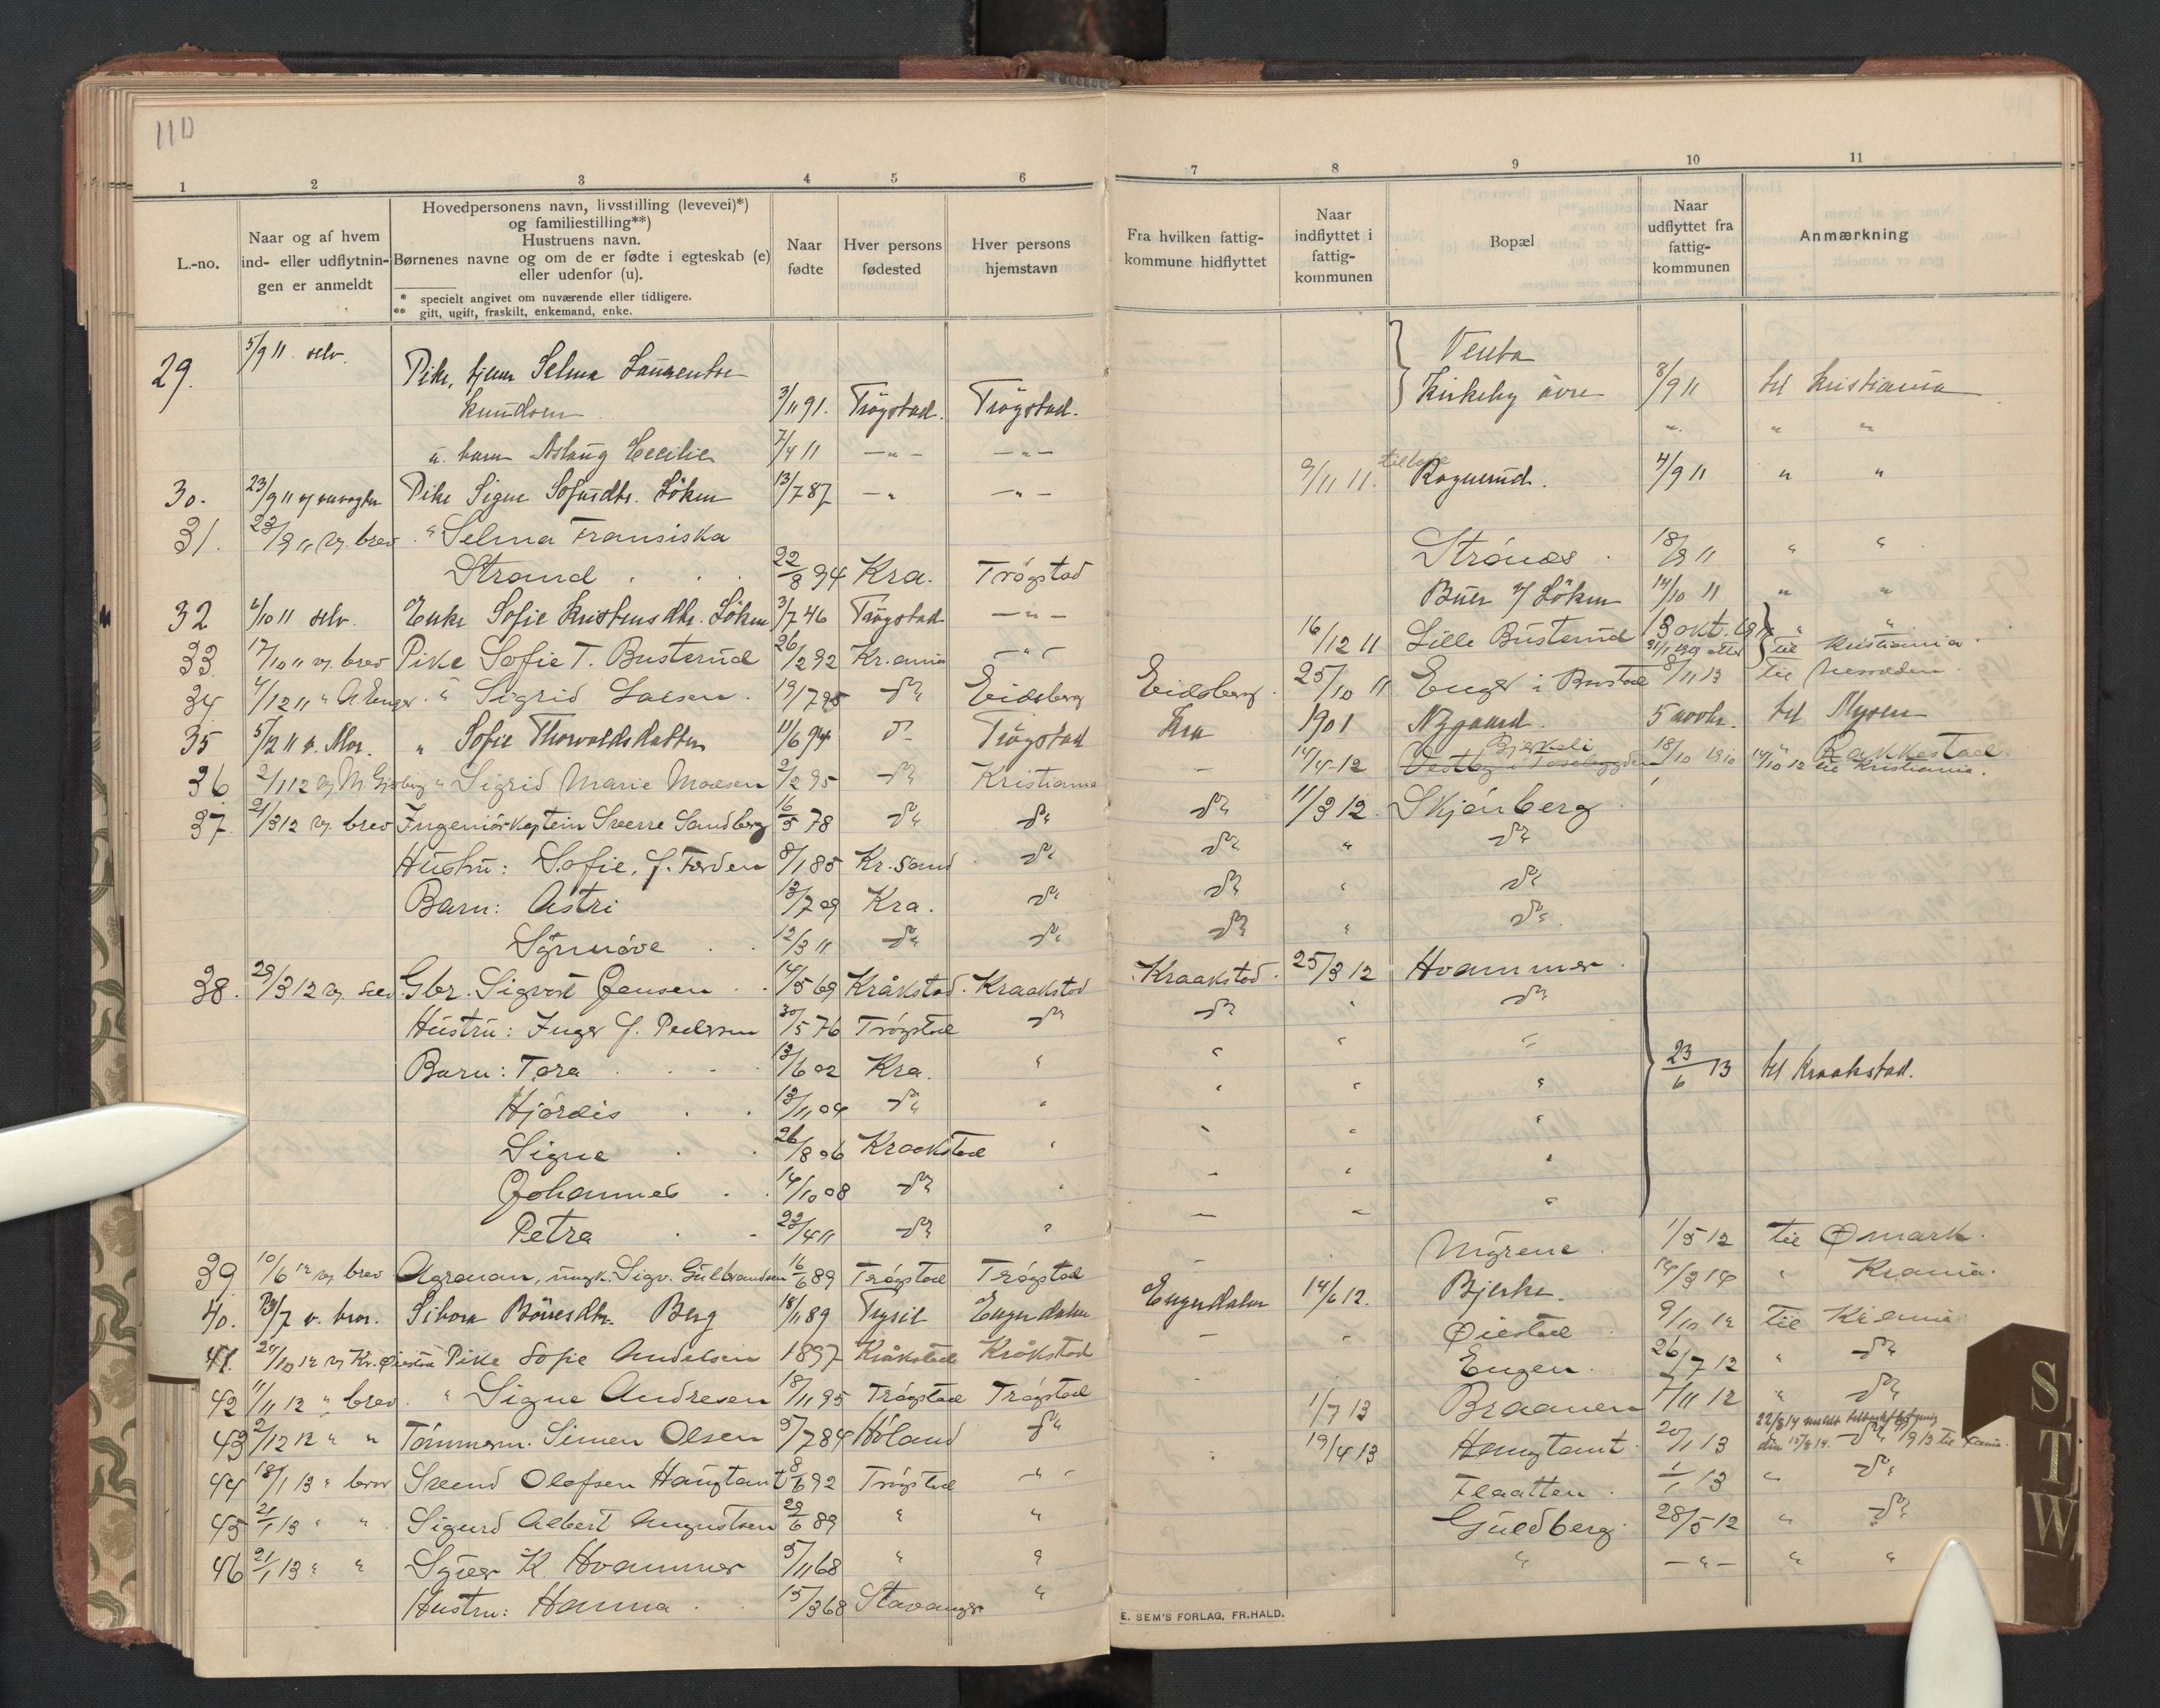 110
1 2 3 4 5 6 7 8 9 10 11
L.-no.
Naar og af hvem ind- eller udflytningen er anmeldt
Hovedpersonens navn, livsstilling (levevei)*) og familiestilling**)
Hustruens navn.
Børnenes navne og om de er fødte i egteskab (e) eller udenfor (u).
* specielt angivet om nuværende eller tidligere.
** gift, ugift, fraskilt, enkemand, enke.
Naar fødte
Hver persons fødested
Hver persons hjemstavn
Fra hvilken fattigkommune hidflyttet
Naar indflyttet i fattigkommunen
Bopæl
Naar udflyttet fra fattigkommunen
Anmærkning
29. 5/9 11 selv. Pike, Selma Venta
Knudsen 3/11 91. Trøgstad. Trøgstad. Kirkeby øvre 8/9 11 til Kristiania
u. barn Aslaug Cecilie 7/4 11 —"— —"— " " "
30. 23/9 11 Pike Signe Sofusdtr. Løken 13/7 87 —" —"— 9/11 11. Rognerud. 4/9 11 " "
31. 23/9 11 vg. brev " Selma Fransiska
Strand 22/8 94 Kra. Trøgstad Strønes 18/9 11 " "
32 6/10 11 selv. Enke Sofie Kristensdtr. Løken 3/7 46 Trøgstad —"— Buer v/ Løken 14/10 11 " "
33. 17/10 11 vg. brev Pike Sofie T. Busterud 26/2 92 Kr.ania —"— 16/12 11 Lille Busterud 13 okt. til Kristiania
34 4/12 11 " A. Enger " Sigrid Larsen. 19/7 95 do Eidsberg Eidsberg. 25/10 11 Enger i Båstad 8/11 13 til
35 5/12 11 v. Mor. " Sofie Thorvaldsdatter 11/6 94 do Trøgstad Kra 1901 Nygaard. 5 novbr. til Mysen
36 2/1 12 vg " Sigrid Marie Madsen 2/2 95 do Kristiania — 14/4-12 Bjerkeli 18/10 1910 " Rakkestad.
14/10 12 til Kristiania.
37. 21/3 12 vg. brev Ingeniørkaptein Sverre Sandberg 16/5 78 do do do 11/3 12. Skjønberg
Hustru: Sofie, f. Førden 8/1 85 Kr.sand do do " do
Barn: Astri 13/7 09 Kra. do do " do
Synnøve 12/3 11 do do do " do
38. 29/3 12 vg. selv Gbr. Sigvart Jensen 14/5 69 Kråkstad. Kraakstad Kraakstad. 25/3 12 Hvammer
Hustru: Inger f. Pedersen 30/5 76 Trøgstad do do " do
Barn: Tora 13/6 02 Kra. " " " " 23/6 13 til Kraakstad.
Hjørdis 13/11 04 do " " " "
Signe 26/8 06 Kraakstad " " " "
Johannes 14/10 08 do " " " "
Petra 23/4 11 do " " " "
39. 10/6 12 vg. brev Agronom, ungk. Sigv. Gulbrandsen 16/6 89 Trøgstad Trøgstad — Myrene 1/5 12 til Ømark.
40. 23/7 v. bror. Berg 18/1 89 Trysil Engerdalen Engerdalen 14/6 12. Bjerke. 14/3 14 " Krania.
41. 24/10 12 vg Kr. Øiestad Pike Sofie Andersen 1897 Kråkstad Kråkstad — Øiestad 9/10 12 til Krania
42 11/11 12 " brev. " Signe Andresen 18/11 95 Trøgstad Trøgstad Engen. 26/7 12 " do
43 2/12 12 " " Tømmerm. Simen Olsen 5/7 84 Høland do 1/7 13 Braanen 7/11 12 " do
44 18/1 13 " bror Svend Olafsen Haugtomt 8/6 92 Trøgstad " 19/4 13 Haugtomt 20/1 13 do
22/8 14 meldt
45 21/1 13 " " Sigurd Albert Augustsen 29/6 89 " " Flaatten. 1/1 13 " do
46 21/1 13 " " Syver K. Hvammer 5/11 68 " " Guldberg. 28/5 12 " do
Hustru: Hanna 15/3 68 Stavanger " " —"— " "
E. SEM'S FORLAG, FR.HALD.
STW